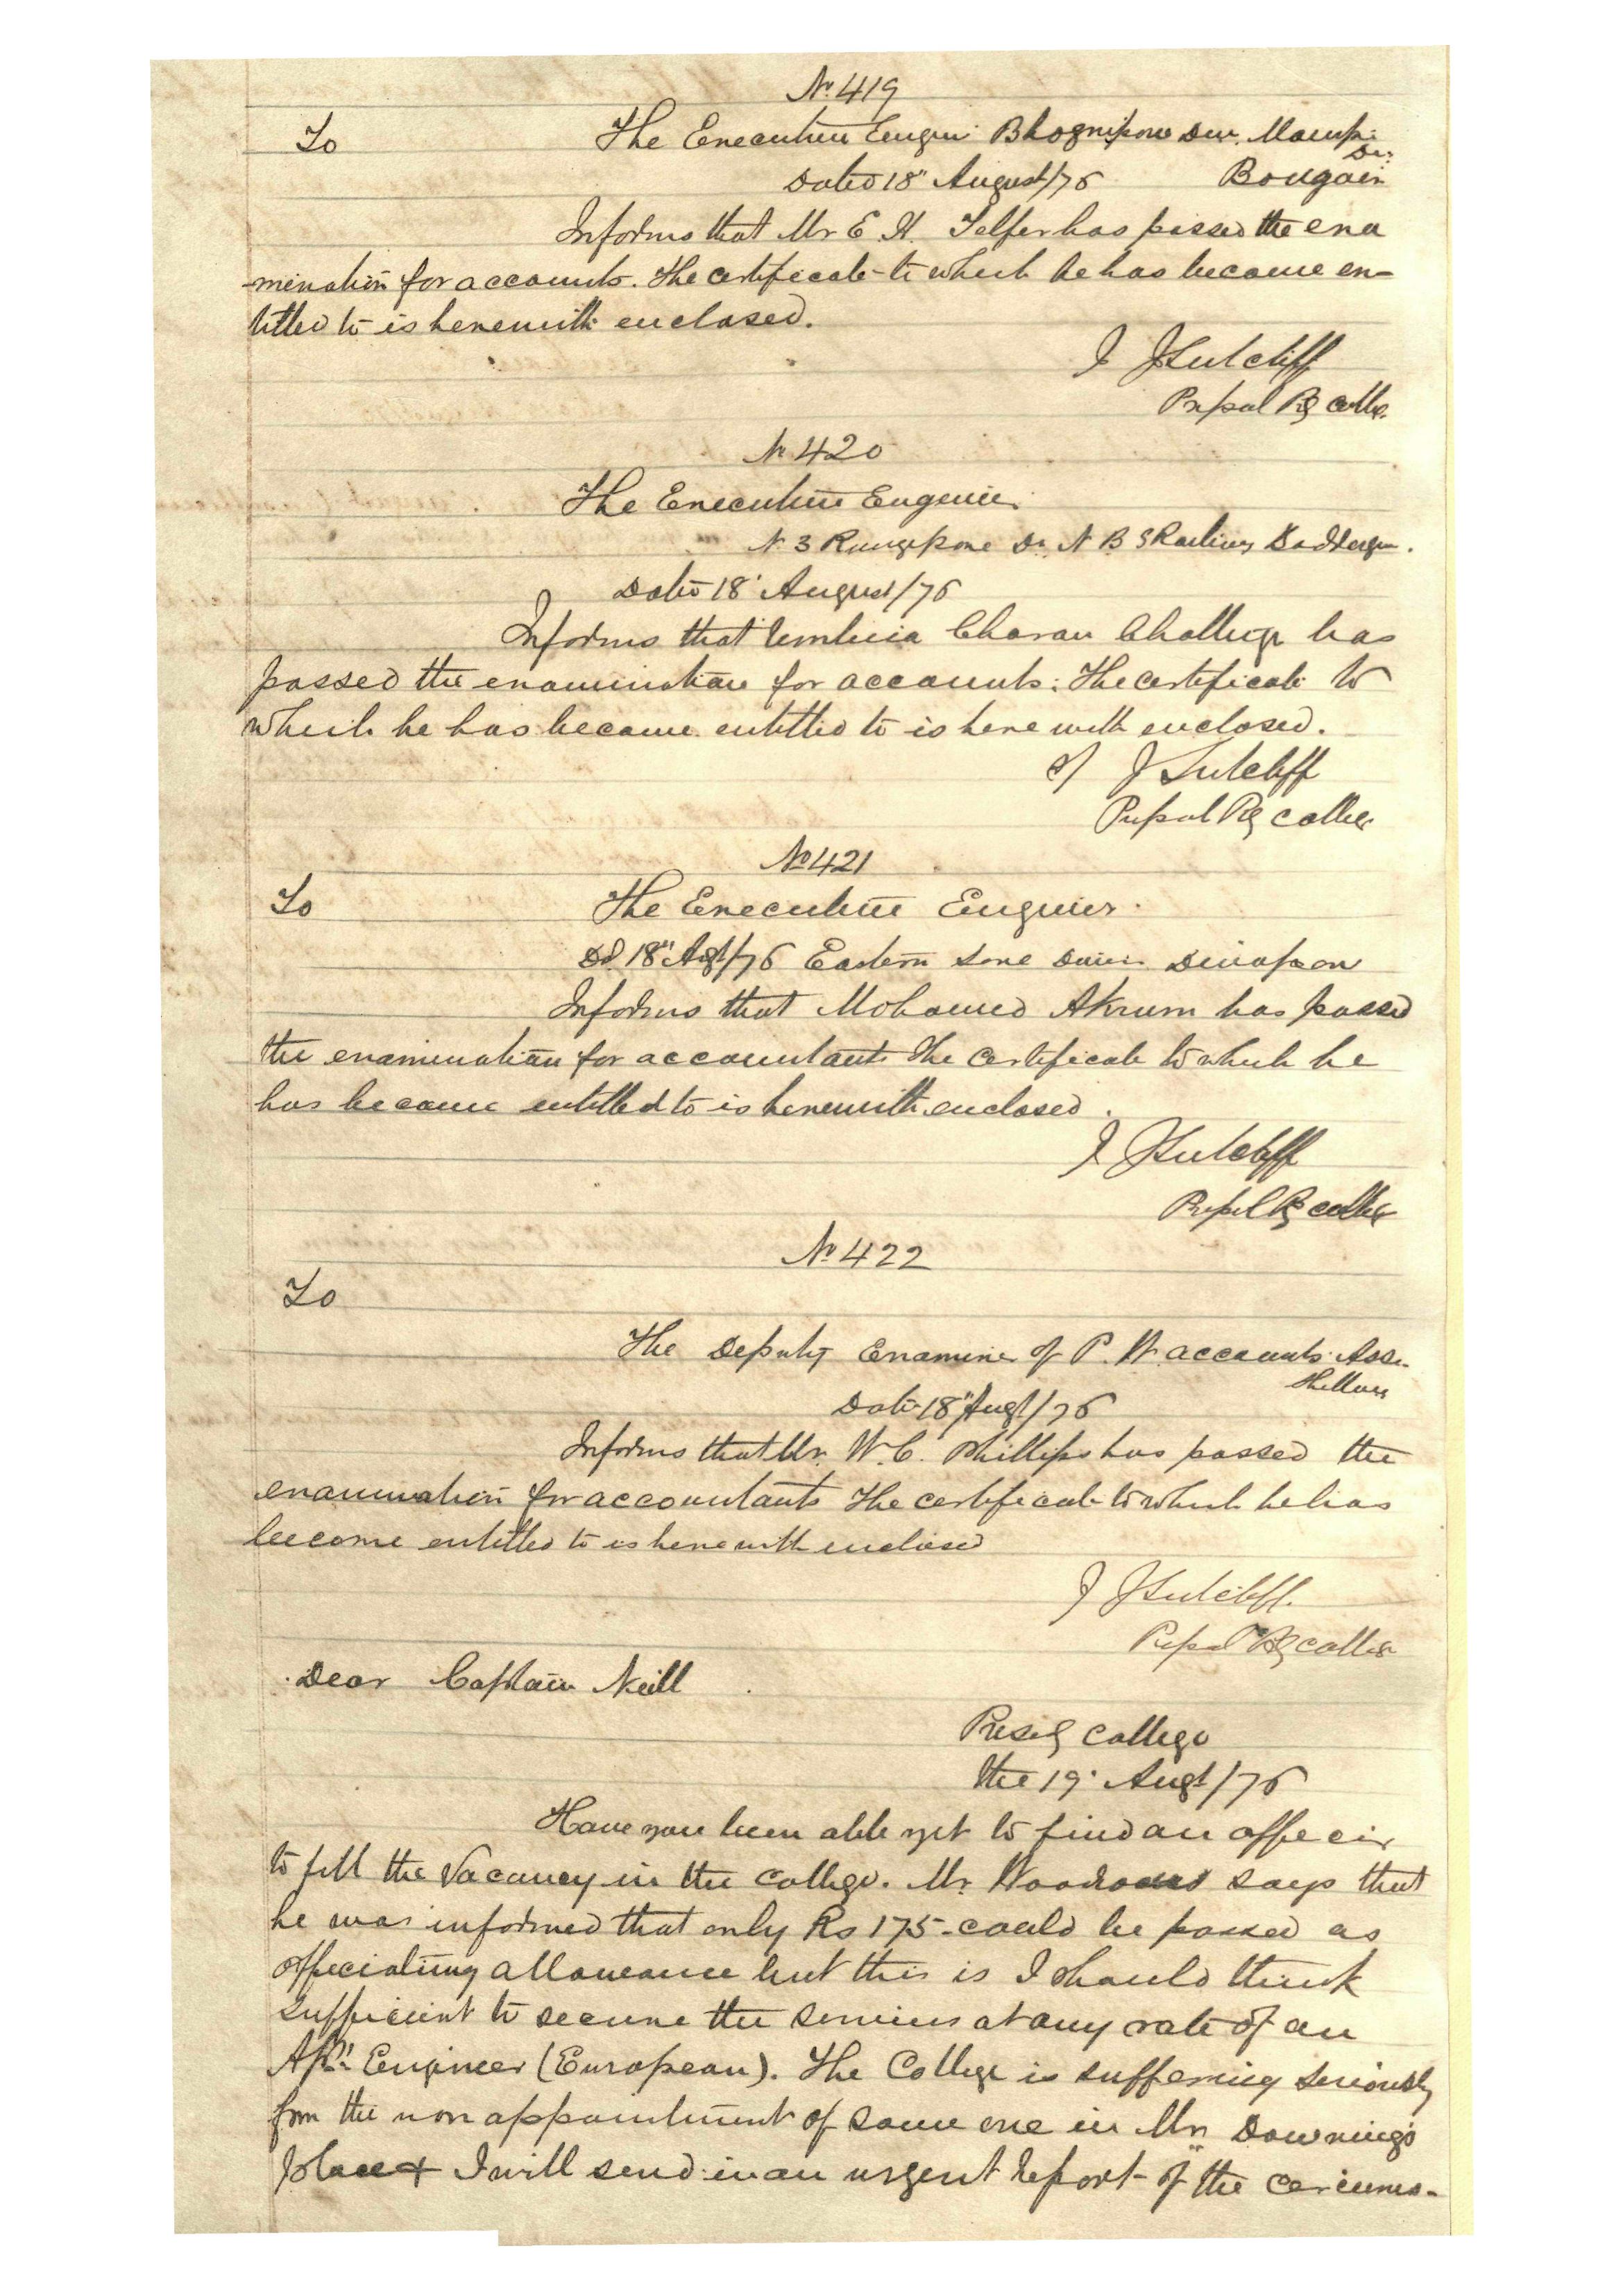 No 419
To The Executive Engin: Div.
Dated 18" August/76
Informs that Mr E. H. Telfer has passed the exa
-mination for accounts. The certificate to which he has become en-
titled to is herewith enclosed.
J Sutcliff
Prpal Pry Colle.
No 420
The Executive Engineer
N. 3 Dn N B S Railway
Dated 18' August/76
Informs that Umbica Charan Chatterje has
passed the examination for accounts. The certificate to
which he has become entitled to is here with enclosed.
J Sutcliff
Prpal Pry Colle
No 421
To The Executive Engineer.
Dd. 18" Augt/76 Eastern Sone Division
Informs that Mohamed Akrum has passed
the examination for accountants The certificate to which he
has become entitled to is herewith enclosed.
J Sutcliff
Prpal Pry Colle
No 422
To
The Deputy Examiner of P. W. accounts Assa
Shillong
Date 18" Augt/76
Informs that Mr. W. C. Phillips has passed the
examination for accountants The certificate to which he has
become entitled to is here with enclosed
J Sutcliff.
Prpal Pry Colle
Dear Captain Neill
Presy College
the 19' Augt/76
Have you been able yet to find an officer
to fill the Vacancy in the College. Mr. Woodrow says that
he was informed that only Rs 175- could be passed as
officiating allowance but this is I should think
sufficient to secure the services at any rate of an
Apt. Engineer (European). The College is suffering seriously
from the non appointment of some one in Mr. Downing's
place & I will send in an urgent report of the circums-